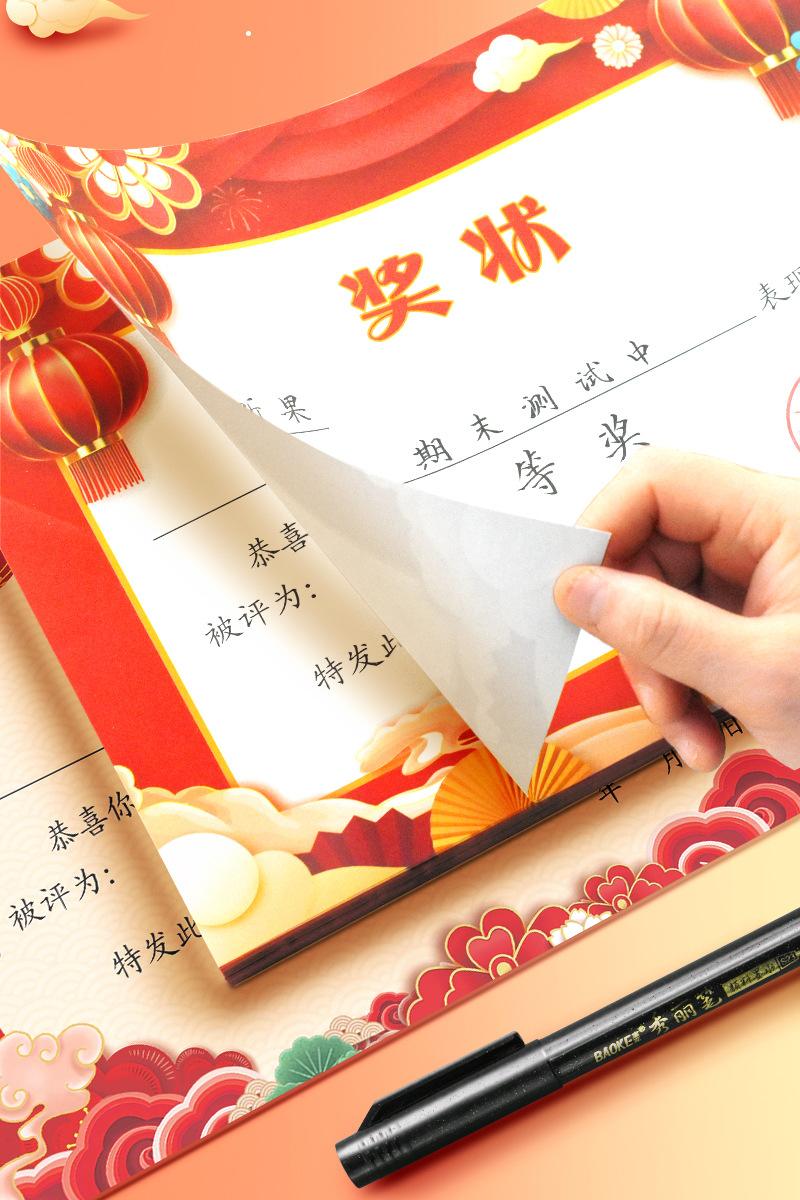 奖状
果 期末测试中 表现
等奖
恭喜
被评为：
特发此
年 月 日
恭喜你
被评为：
特发此
BAOKE 秀丽笔